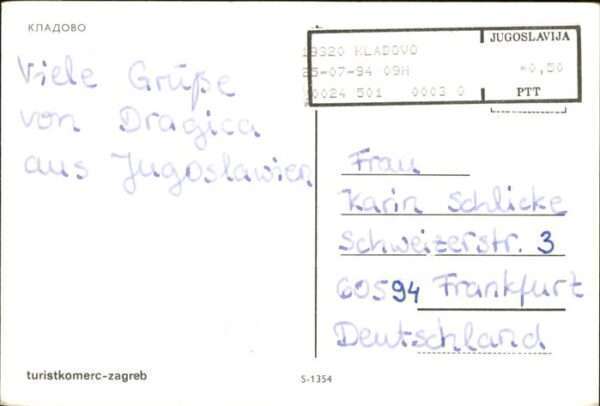 КЛАДОВО
JUGOSLAVIJA
19320 KLADOVO
25-07-94 09H
*0,50
00024 501 0003 0
PTT
Viele Grüße
von Dragica
aus Jugoslawien
Frau
Karin Schlicke
Schweizerstr. 3
60594 Frankfurt
Deutschland
turistkomerc-zagreb
S-1354